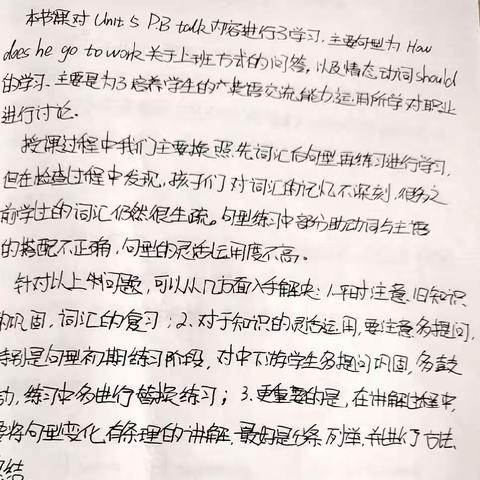 本书课对 Unit 5 P.B talk 内容进行了学习. 主要句型为 How
does he go to work 关于上班方式的问答, 以及情态动词 should
的学习. 主要是为了培养学生的英语交流能力, 运用所学对职业
进行讨论.
授课过程中我们主要按照先词汇后句型再练习进行学习,
但在检查过程中发现, 孩子们对词汇的记忆不深刻, 很多之
前学过的词汇仍然很生疏。句型练习中部分助动词与主语
的搭配不正确, 句型的灵活运用度不高。
针对以上问题, 可以从几方面入手解决: 1.平时注意旧知识
的巩固, 词汇的复习; 2. 对于知识的灵活运用, 要注意多提问,
特别是句型初期练习阶段, 对中下的学生多提问巩固, 多鼓
励, 练习中多进行替换练习; 3. 更重要的是, 在讲解过程中,
要将句型变化有条理的讲解, 最好是分条列举, 并进行方法
总结